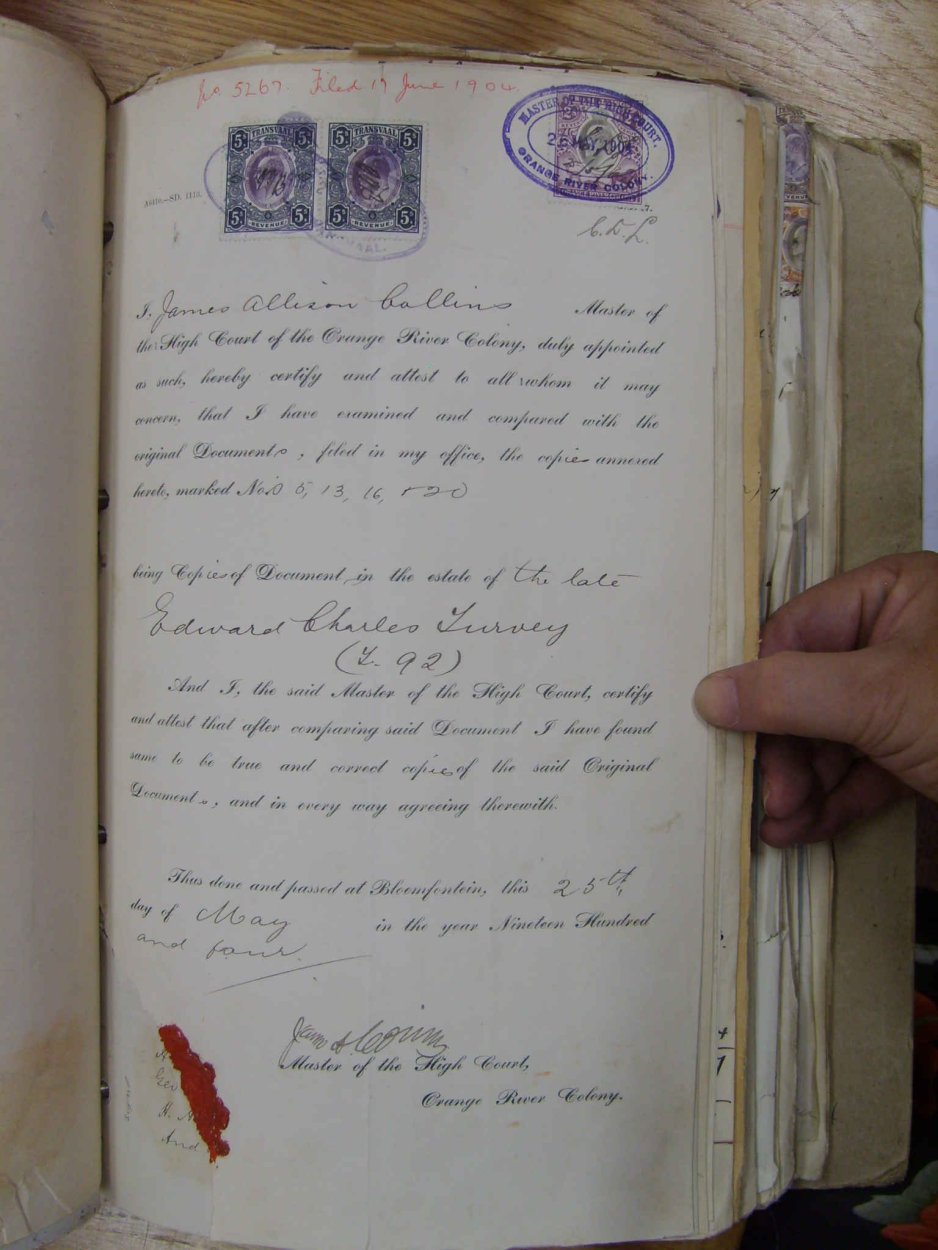 No 5267. Filed 17 June 1904.
5/ TRANSVAAL 5/
5/ REVENUE 5/
5/ TRANSVAAL 5/
5/ REVENUE 5/
MASTER OF THE HIGH COURT.
25 MAY 1904
ORANGE RIVER COLONY.
C.D.L.
I, James Allison Collins Master of
the High Court of the Orange River Colony, duly appointed
as such, hereby certify and attest to all whom it may
concern, that I have examined and compared with the
original Documents, filed in my office, the copies annexed
hereto, marked Nos 5, 13, 16, & 20
being Copies of Document in the estate of the late
Edward Charles Turvey
(T. 92)
And I, the said Master of the High Court, certify
and attest that after comparing said Document I have found
same to be true and correct copies of the said Original
Documents, and in every way agreeing therewith.
Thus done and passed at Bloemfontein, this 25th
day of May in the year Nineteen Hundred
and four.
James A Collins
Master of the High Court,
Orange River Colony.
And